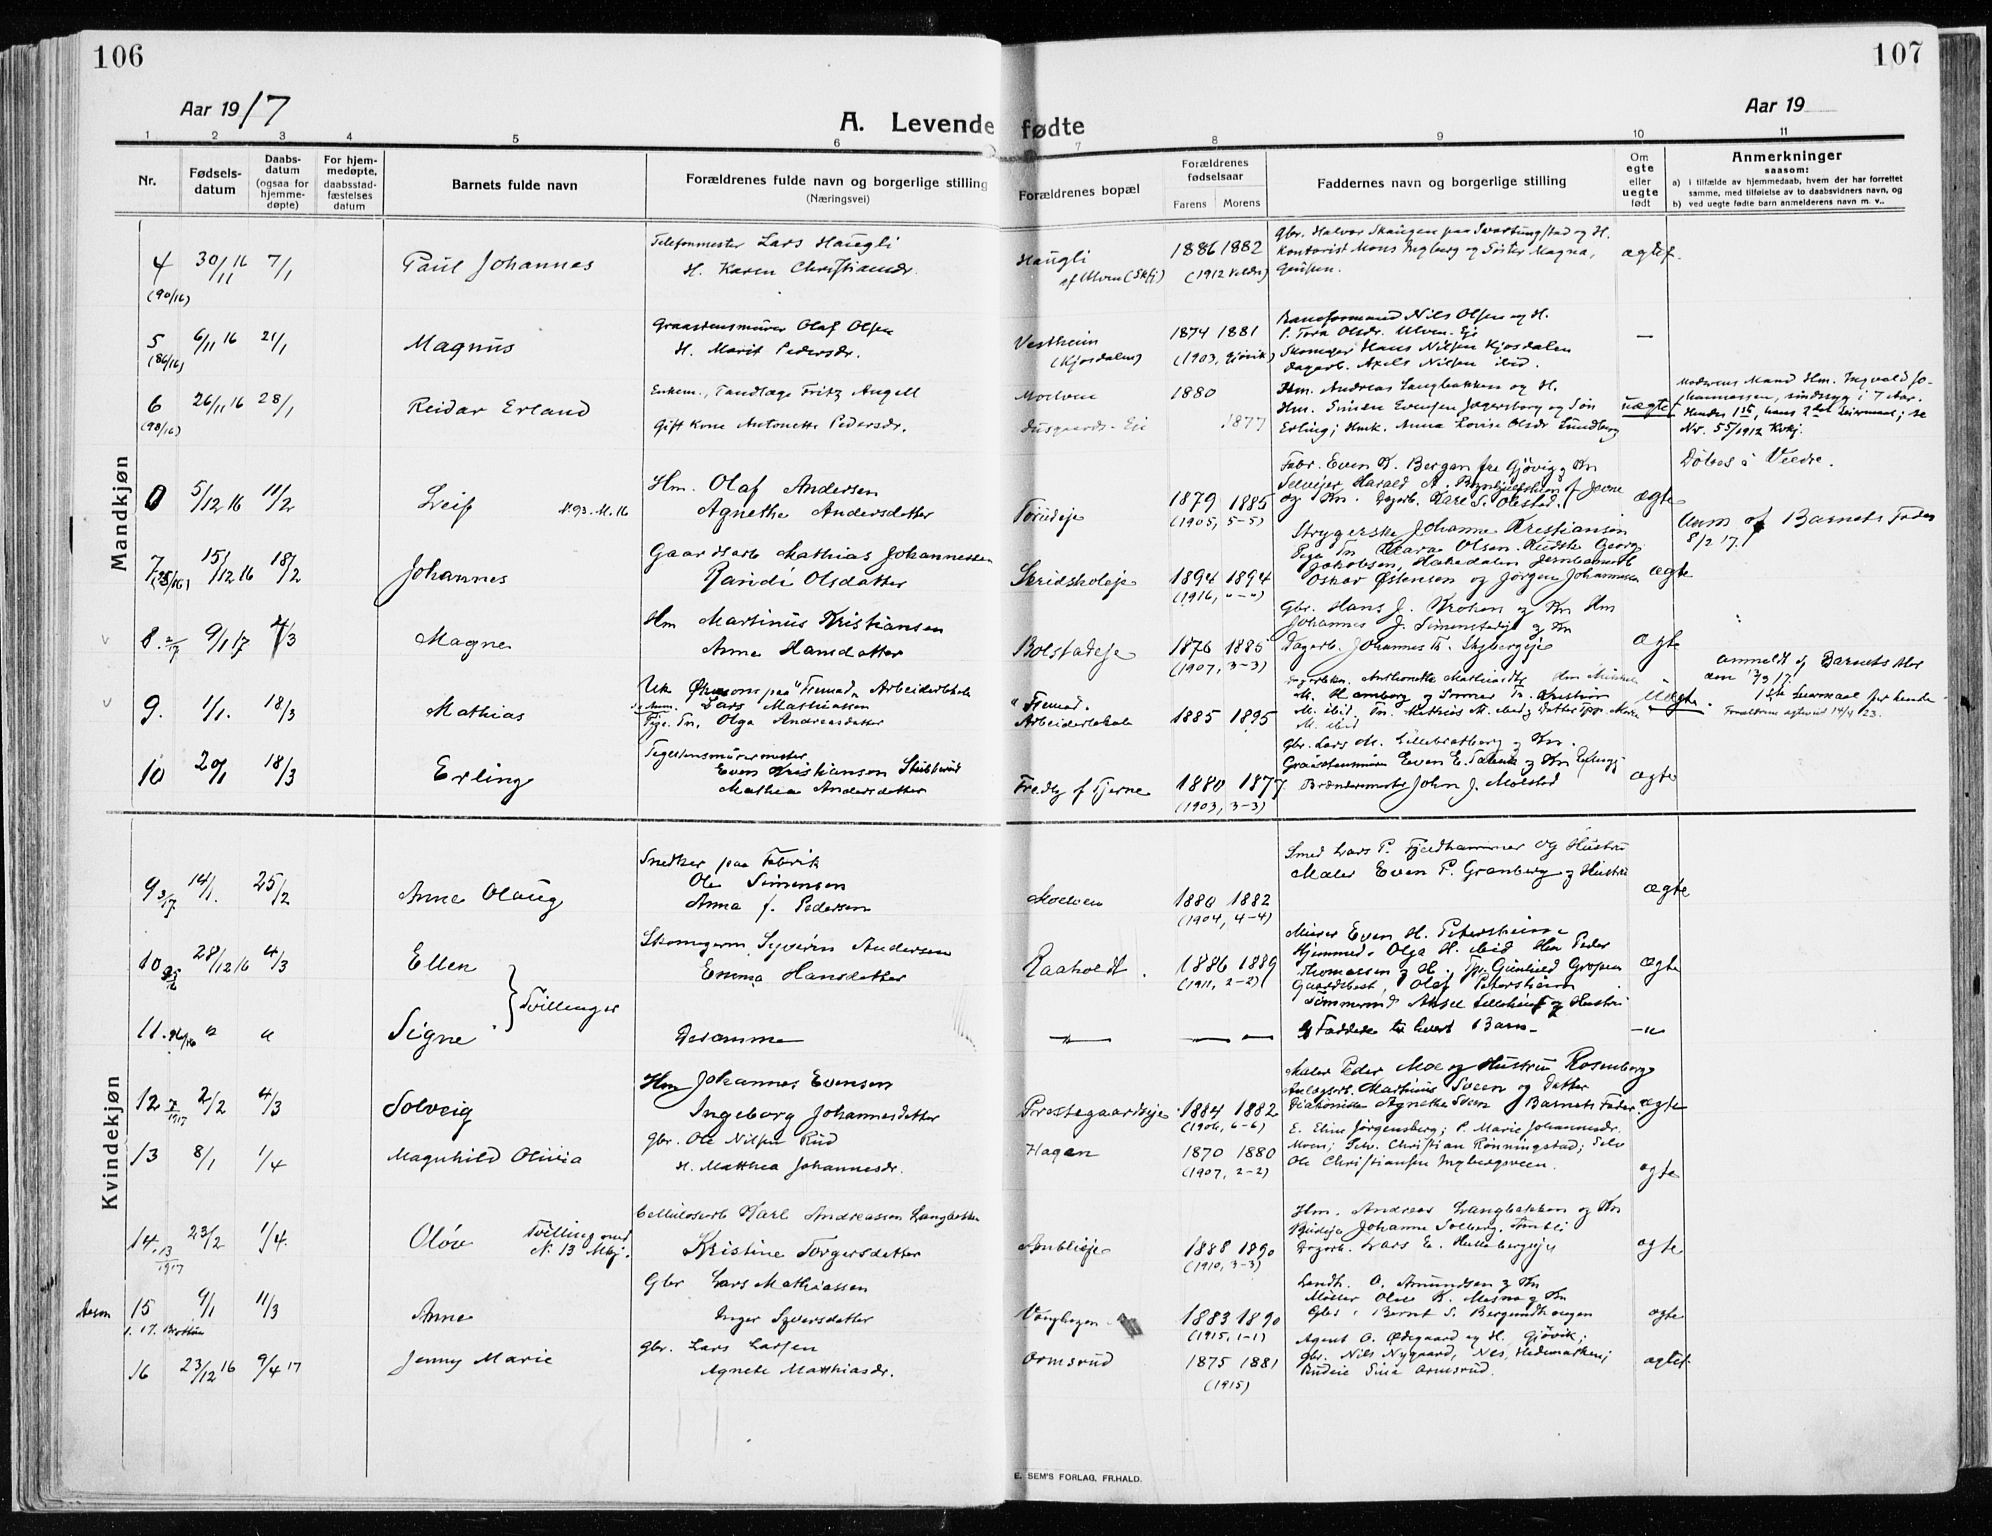 106
107
Aar 1917
Aar 19
A. Levende fødte
1 2 3 4 5 6 7 8 9 10 11
Nr.
Fødsels-
datum
Daabs-
datum
(ogsaa for
hjemme-
døpte)
For hjem-
medøpte,
daabsstad-
fæstelses
datum
Barnets fulde navn
Forældrenes fulde navn og borgerlige stilling
(Næringsvei)
Forældrenes bopæl
Forældrenes
fødselsaar
Farens Morens
Faddernes navn og borgerlige stilling
Om
egte
eller
uegte
født
Anmerkninger
saasom:
a) i tilfælde av hjemmedaab, hvem der har forrettet
samme, med tilføielse av to daabsvidners navn, og
b) ved uegte fødte barn anmelderens navn m. v..
Mandkjøn
4 30/11 16 7/1 Paul Johannes
(90/16)
Telefonmester Lars Haugli
H. Karen Christiansdr.
Haugli
af Ulven (Skfj)
1886 1882
(1912 Veldre)
Gbr. Halvor Skaugen paa Svartungstad og H.
Kontorist Mons Ingberg og Søster Magna,
ægtef.
5 6/11 16 21/1 Magnus
(86/16)
Graastensmurer Olaf Olsen
H. Marit Pedersdr.
Vestheim
(Kjosdalen)
1874 1881
(1903, Gjøvik)
Baneformand Nils Olsen og H.
P. Tora Olsdr. Ulven. Eje
Skomager Hans Nilsen Kjosdalen
Dagarb. Axels Nilsen ibid.
—
6 26/11 16 28/1 Reidar Erland
(98/16)
Enkem., Tandlæge Fritz Angell
Gift Kone Antonette Pedersdr.
Moelven
1880
1877
Hm. Andreas Langbakken og H.
Hm. Simen Evensen Jægersborg og Søn
Erling; Hmk. Anna Lovise Olsdr Lundberg
uægtef
Moderens Mand Hm. Ingvald Jo-
hannessen, sindssyg i 7 Aar.
Nr. 55/1912 Kvkj.
0 5/12 16 11/2 Leif N. 93. M. 16
Hm. Olaf Andersen
Agnethe Andersdatter
Torudeje
1879 1885
(1905, 5-5)
Fabr. Even K. Bergan fra Gjøvig og Kn
ægte
Døbes i Veldre.
Anm af Barnets Fader
8/2 17.
7 15/12 16 18/2 Johannes
Gaardarb Mathias Johannessen
Randi Olsdatter
Skridskoleje
1894 1894
(1916, "-")
Strygerske Johanne Kristiansen
Pige Tn. Klara Olsen.
Oskar Østensen og Jørgen Johannessen
ægte
8 2/17 9/1 17 4/3 Magne
Hm Martinus Kristiansen
Anne Hansdatter
Bolstadeje
1876 1885
(1907, 3-3)
Gbr. Hans J. Krohen og Kn Hm
Johannes J. Simenstadeje og Kn
Dagarb. Johannes Th. Skybergeje
ægte
9. 1/1. 18/3 Mathias
Lars Mathiassen
Pige. Tn. Olga Andreasdatter
"Fremad"
Arbeiderlokale
1885 1895
Uægte.
anmeldt af Barnets Mor
den 12/3 17.
10 20/1 18/3 Erling
Teglstensmurermester
Even Kristiansen Stubberud
Mathea Andersdatter
Fredly af Tjerne
1880 1877
(1903, 3-3)
Gbr. Lars M. Lillebratberg og Kn.
Brændemester John J. Molstad
ægte
Kvindekjøn
9 3/17 14/1. 25/2 Anne Olaug
Snedker paa Fabrik
Ole Simensen
Anna f. Pedersen
Moelven
1880 1882
(1904, 4-4)
Smed Lars P. Fjeldhammer og Hustru
Maler Even P. Granberg og Hustru
ægte
10 28/12 16 4/3 Ellen
Skomagerm. Syverin Andersen
Emma Hansdatter
Raaholdt.
1886 1889
(1911, 2-2)
Murer Even H. Petersheim
Hjemmed. Olga H. ibid Hm Peder
Thomassen og H.
Gaardsbest. Olaf Petersheim
ægte
Tvillinger
11. 96/16 " " Signe
Desamme
—"— — —
Faddere til hvert Barn —
—"
12 7/1917 2/2 4/3 Solveig
Hm Johannes Evensen
Ingeborg Johannesdatter
Prestegaardseje
1884 1882
(1906, 6-6)
Maler Peder Moe og Hustru Rosenberg
Anlægsarb. Martinus Sveen og Datter
Diakonisse Agnethe Sveen Barnets Fader.
ægte
13 8/1 1/4 Magnhild Olivia
Gbr. Ole Nilsen Rud
H. Matthea Johannesdr.
Hagen
1870 1880
(1907, 2-2)
E. Eline Jørgensberg; P. Marie Johannesdr.
Moen; Selv. Christian Rønningstad; Selv
Ole Christiansen Ingbergsveen.
ægte
14. 13/1917 23/2 1/4. Oløv Tvilling med
N. 13 Mkj.
Cellulosearb Karl Andreassen Langbakken
Kristine Torgersdatter
Amblieje
1888 1890
(1910, 3-3)
Hm. Andreas Langbakken og Kn
Budeje Johanne Solberg. Ambli
Dagarb. Lars E. Hullebergseje
ægte
15 9/1 11/3 Anne
Gbr Lars Mathiassen
Inger Syversdatter
1883 1890
(1915, 1-1)
Landh. O. Amundsen og Kn
Møller Olve K. Mesna og Kn
Gbr. Bernt S. Bergundhaugen
ægte
16 23/12 16 9/4 17 Jenny Marie
Gbr. Lars Larsen
Agnete Matthiasdr.
Ormsrud
1875 1881
(1915)
Agent O. Ødegaard og H. Gjøvik;
Gbr. Nils Nygaard, Nes, Hedemarken;
Budeie Sina Ormsrud.
ægtef.
E. SEM'S FORLAG, FR.HALD.